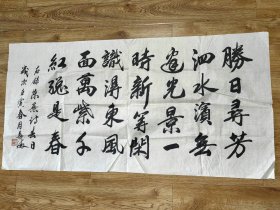 勝日尋芳
泗水濱無
邊光景一
時新等閑
識得東風
面萬紫千
紅總是春
右錄朱熹詩春日
歲次壬寅春月